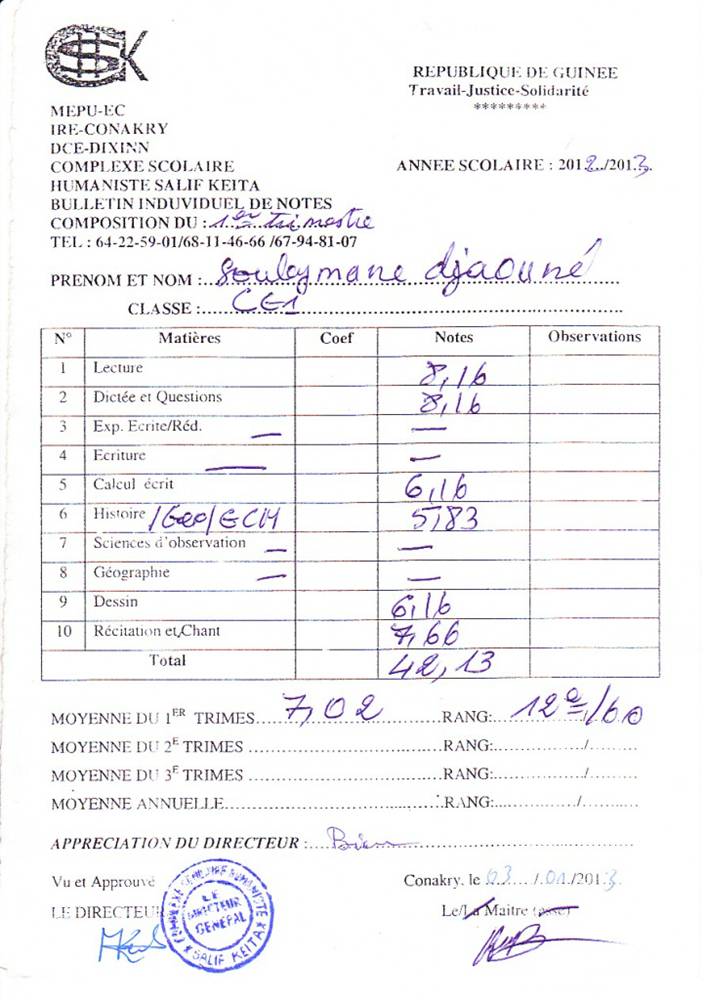 REPUBLIQUE DE GUINEE
Travail-Justice-Solidarité
*********
MEPU-EC
IRE-CONAKRY
DCE-DIXINN
COMPLEXE SCOLAIRE
HUMANISTE SALIF KEITA
BULLETIN INDUVIDUEL DE NOTES
ANNEE SCOLAIRE : 2012../2013.
COMPOSITION DU : 1er trimestre
TEL : 64-22-59-01/68-11-46-66 /67-94-81-07
PRENOM ET NOM : Souleymane djaouné
CLASSE : CE1
N° Matières Coef Notes Observations
1 Lecture 8,16
2 Dictée et Questions 8,16
3 Exp. Ecrite/Réd. — —
4 Ecriture — —
5 Calcul écrit 6,16
6 Histoire /Geo/ECM 5,83
7 Sciences d'observation — —
8 Géographie — —
9 Dessin 6,16
10 Récitation et Chant 7,66
Total 42,13
MOYENNE DU 1ER TRIMES....7,02.........RANG:...12e/60
MOYENNE DU 2E TRIMES ..............................RANG:............./.........
MOYENNE DU 3E TRIMES ..............................RANG:............./.........
MOYENNE ANNUELLE..................................RANG:............./.........
APPRECIATION DU DIRECTEUR :....Bien....
Vu et Approuvé
Conakry, le 03...../.01./2013.
LE DIRECTEUR
Le/La Maitre (esse)
COMPLEXE SCOLAIRE HUMANISTE
LE
DIRECTEUR
GENERAL
* SALIF KEITA *